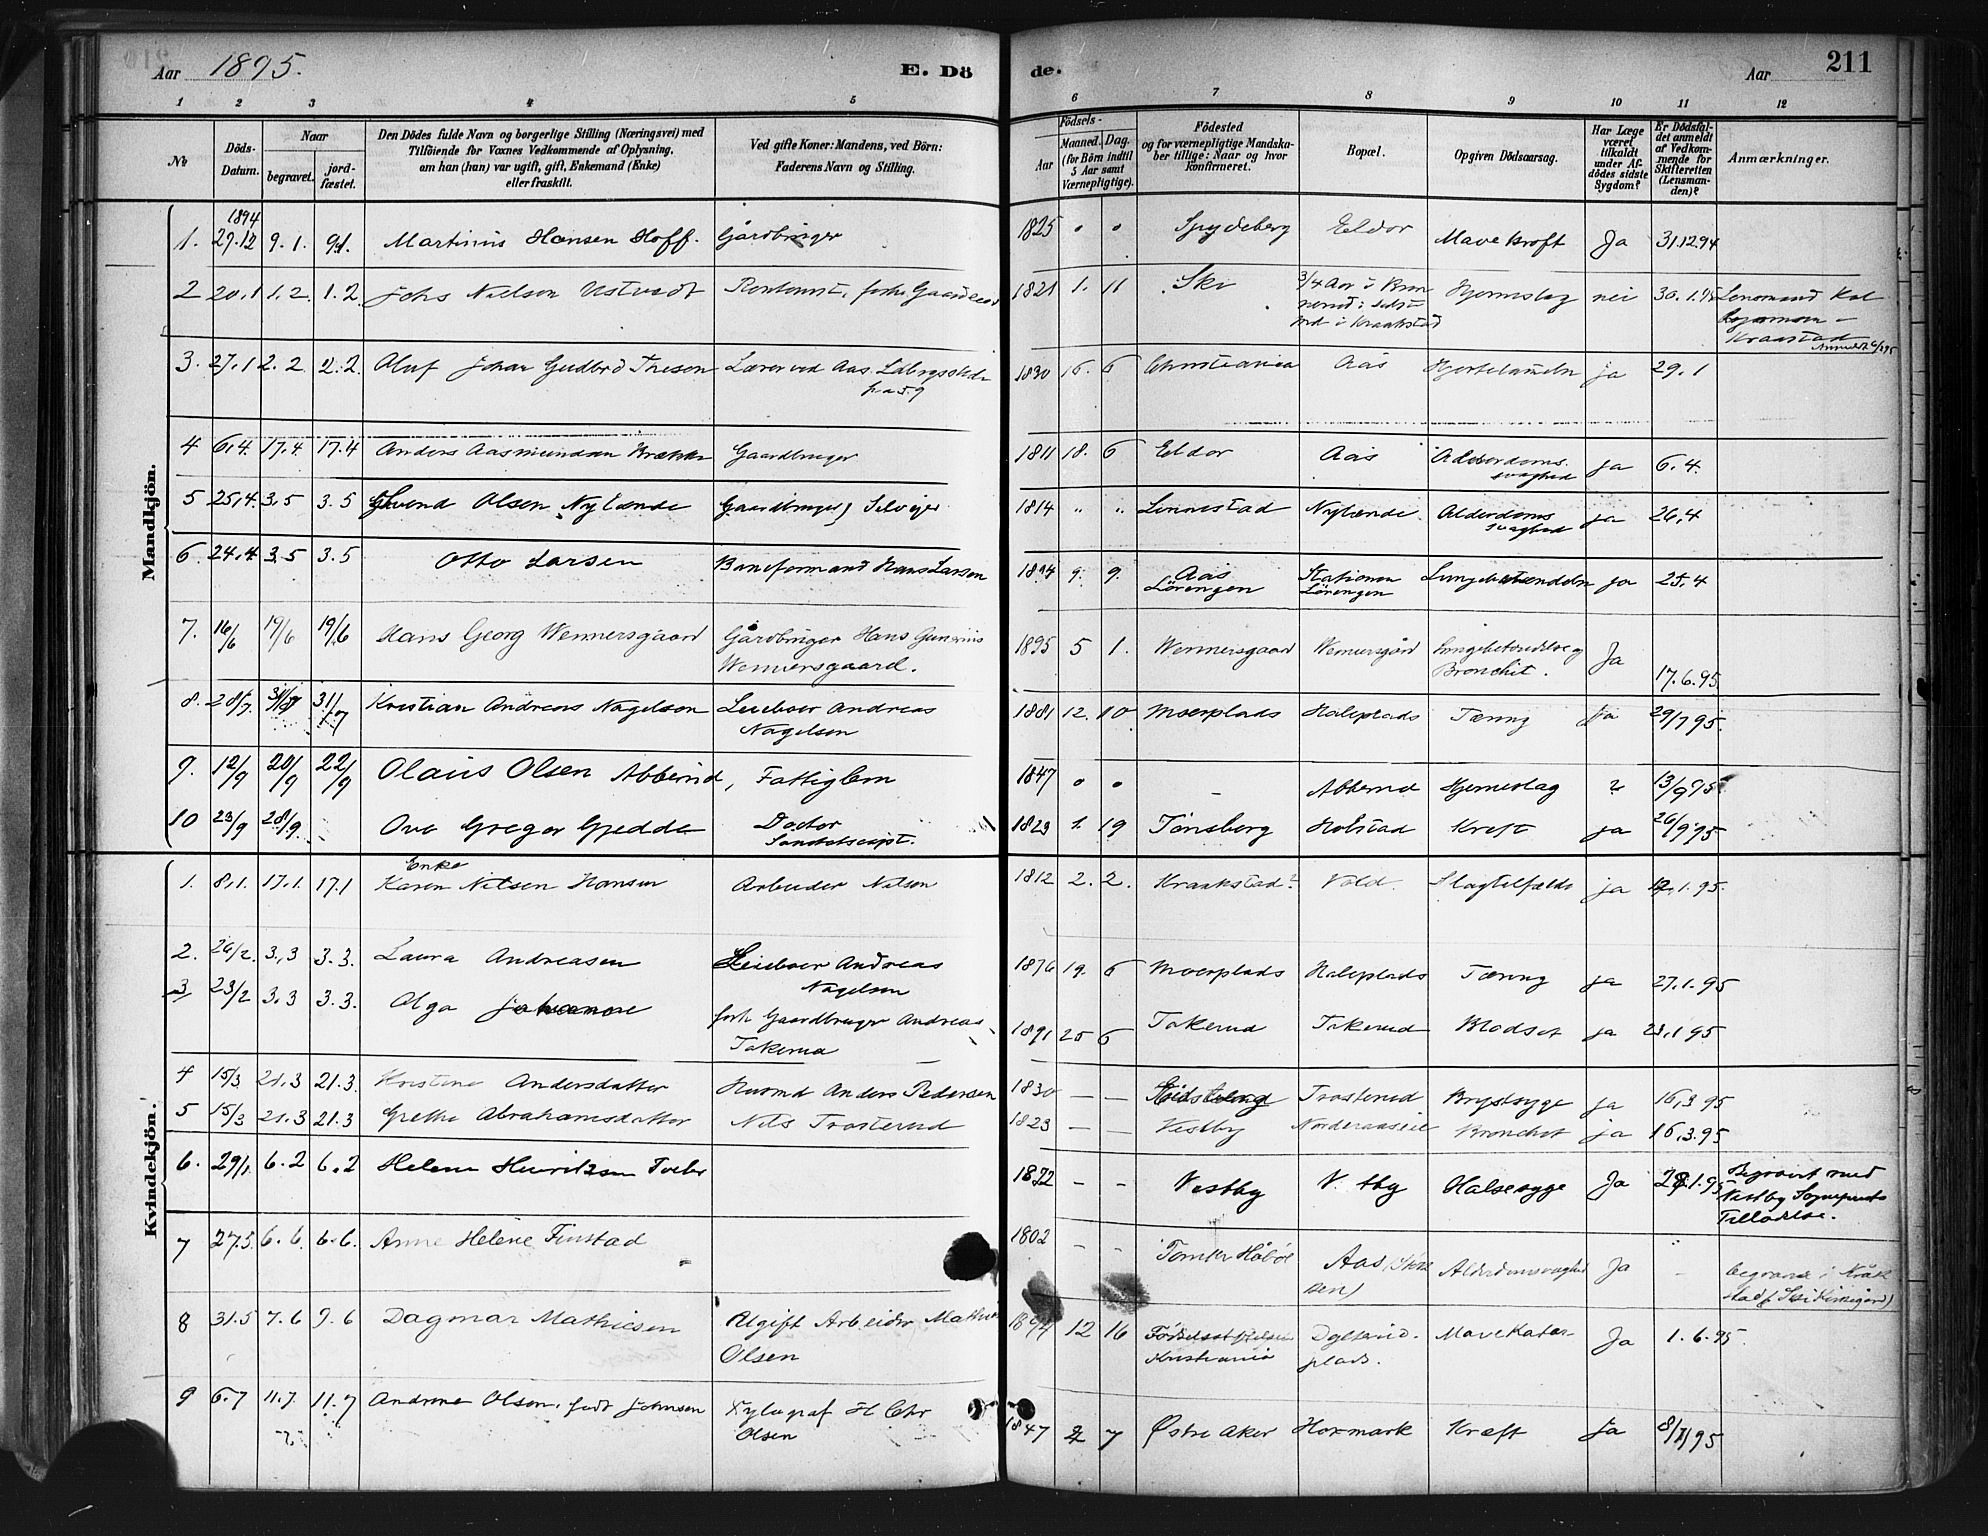 Aar 1895.
E. Dö
de.
Aar
211
1 2 3 4 5
6 7 8 9 10 11 12
No
Döds-Datum.
Naar
begravet.
jord-fæstet.
Den Dödes fulde Navn og borgerlige Stilling (Næringsvei) med
Tilföiende for Voxnes Vedkommende af Oplysning,
om han (hun) var ugift, gift, Enkemand (Enke)
eller fraskilt.
Ved gifte Koner: Mandens, ved Börn:
Faderens Navn og Stilling.
Födsels-
Aar
Maaned. Dag.
(for Börn indtil
5 Aar samt
Værnepligtige).
Födested
og for værnepligtige Mandska-
ber tillige: Naar og hvor
konfirmeret.
Bopæl.
Opgiven Dödsaarsag.
Har Læge
været
tilkaldt
under Af-
dödes sidste
Sygdom?
Er Dödsfal-
det anmeldt
af Vedkom-
mende for
Skifteretten
(Lensman-
den)?
Anmærkninger.
Mandkjön.
1894
1. 29.12 9.1. 9.1. Martinus Hansen Hoff. Gårdbruger 1825 " " Spydeberg Eldor Mavekræft Ja 31.12.94
2 20.1 1.2. 1.2. Johs Nielsen Ustvedt 1821 1. 11 Ski 3/4 Aar i nei 30.1.95 Lensmand
i Kraakstad
Kraakstad
3. 27.1 2.2 2.2 Oluf Johan Gudbrd Lærer ved Aas 1830 16. 6 Christiania Aas ja 29.1
4 6.4. 17.4 17.4 Anders Aasmundsen Brække Gaardbruger 1811 18. 6 Eldor Aas Alderdoms ja 6.4.
svaghed
5 25.4. 3.5 3.5 Svend Olsen Nylænde Gaardbruger Selveier 1814 " " Nylænde Alderdoms ja 26.4
svaghed
6. 24.4 3.5 3.5 Otto Larsen Baneformand Hans Larsen 1894 9. 9. Aas Stationen ja 25.4
Lörengen Lörengen
7. 16/6 19/6 19/6 Hans Georg Wennersgaard Gårdbruger Hans Gunerius 1895 5 1. Wennersgaard Wennersgård Lungebetændelse og Ja 17.6.95
Wennersgaard. Bronchit.
8. 28/7. 31/7 31/7 Kristian Andreas Nagelsen Leieboer Andreas 1881 12. 10 Moerplads Holeplads Tæring Ja 29/7 95.
Nagelsen
9. 12/9 20/9 22/9 Olaus Olsen Abberud, Fattiglem 1847 " " – Abberud Hjerneslag ? 13/9 95
10 23/9 28/9. Ove Greger Gjedde Doctor 1823 1. 19 Tönsberg Holstad Kreft ja 26/9 95
Kvindekjön.
Enke
1. 8.1. 17.1. 17.1 Karen Nilsen Hansen Arbeider Nilson 1812 2. 2. Kraakstad? Vold. Slagtilfælde ja 12.1.95.
2. 26/2. 3.3 3.3. Laura Andreasen Leieboer Andreas 1876 19. 6 Moerplads Holeplads Tæring ja 27.1.95
Nagelsen
3 23/2 3.3 3.3. Olga Johanne forh Gaardbruger Andreas 1891 25 6 Takerud Takerud Blodsot ja 23.1 95
Takerud
4 15/3 21.3 21.3. Kristine Andersdatter Husmd Anders Pedersen 1830 – – Trosterud Brystsyge ja 16.3 95
5 15/3 21.3 21.3 Grethe Abrahamsdatter Nils Trosterud 1823 – – Vestby Bronchit ja 16.3.95
6. 29/1. 6.2 6.2 Helene Henriksen 1872 – – Vestby Vestby Halsesyge Ja 1.95 Begravet med
Vestby Sogneprests
Tilladelse.
7 27.5. 6.6. 6.6. Anne Helene Finstad 1802 – – Tomter Håböl Aas (Ski Alderdomssvaghed Ja – begravet i Kråk
sen) stad (Ski Kirkegård)
8 31.5 7.6 7.6 Dagmar Mathiesen Ugift Arbeider Mathias 1894 12 16 Födselsstiftelsen Mavekatar. Ja 1.6.95.
Olsen Kristiania plads.
9 6.7 11.7. 11.7 Andrine Olsen, födt Johnsen Xylograf H Chr 1847 2 7 Østre Aker Hormark Kræft Ja 8/7 95
Olsen